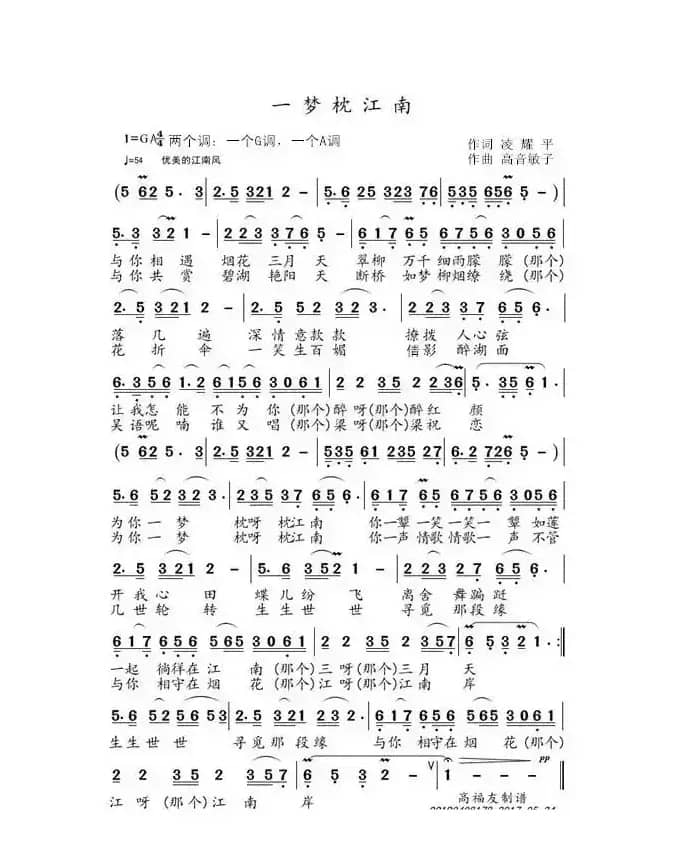 一梦枕江南
1=GA 4/4 两个调：一个G调，一个A调
作词 凌耀平
♩=54 优美的江南风
作曲 高音敏子
(5 62 5· 3 | 2·5 321 2 - | 5·6 25 323 76 | 535 656 5 - )
5·3 321 - | 223 376 5 - | 617 65 6756 3056
与你相遇 烟花三月天 翠柳 万千细雨朦朦(那个)
与你共赏 碧湖艳阳天 断桥 如梦柳烟缭绕(那个)
2·5 321 2 - | 2·5 52 323· | 223 37 656·
落几遍 深情意款款 撩拨人心弦
花折伞 一笑生百媚 偖影醉湖面
6·356 1·2 6156 3061 | 2 2 35 2 2236 | 5·35 61·
让我怎能不为你(那个)醉呀(那个)醉红颜
吴语呢喃谁又唱(那个)梁呀(那个)梁祝恋
(5 62 5·3 | 2·5 321 2 - | 535 61 235 27 | 6·2 726 5 - )
5·6 52 323· | 235 37 656· | 617 65 6756 3056
为你一梦 枕呀枕江南 你一颦一笑一笑一颦如莲
为你一梦 枕呀枕江南 你一声情歌情歌一声不管
2·5 321 2 - | 5·6 352 1 - | 223 27 656·
开我心田 蝶儿纷飞 离舍舞蹁跹
几世轮转 生生世世 寻觅那段缘
617 656 565 3061 | 2 2 35 2 357 | 6 5 321· :‖
一起徜徉在江南(那个)三呀(那个)三月天
与你相守在烟花(那个)江呀(那个)江南岸
5·6 52 56 53 | 2·5 321 2321 | 617 656 565 3061
生生世世 寻觅那段缘 与你相守在烟花(那个)
pp
2 2 35 2 357 | 6· 5 3· 2 - ∨ | 1 - - - ‖
江呀(那个)江南岸
高福友制谱